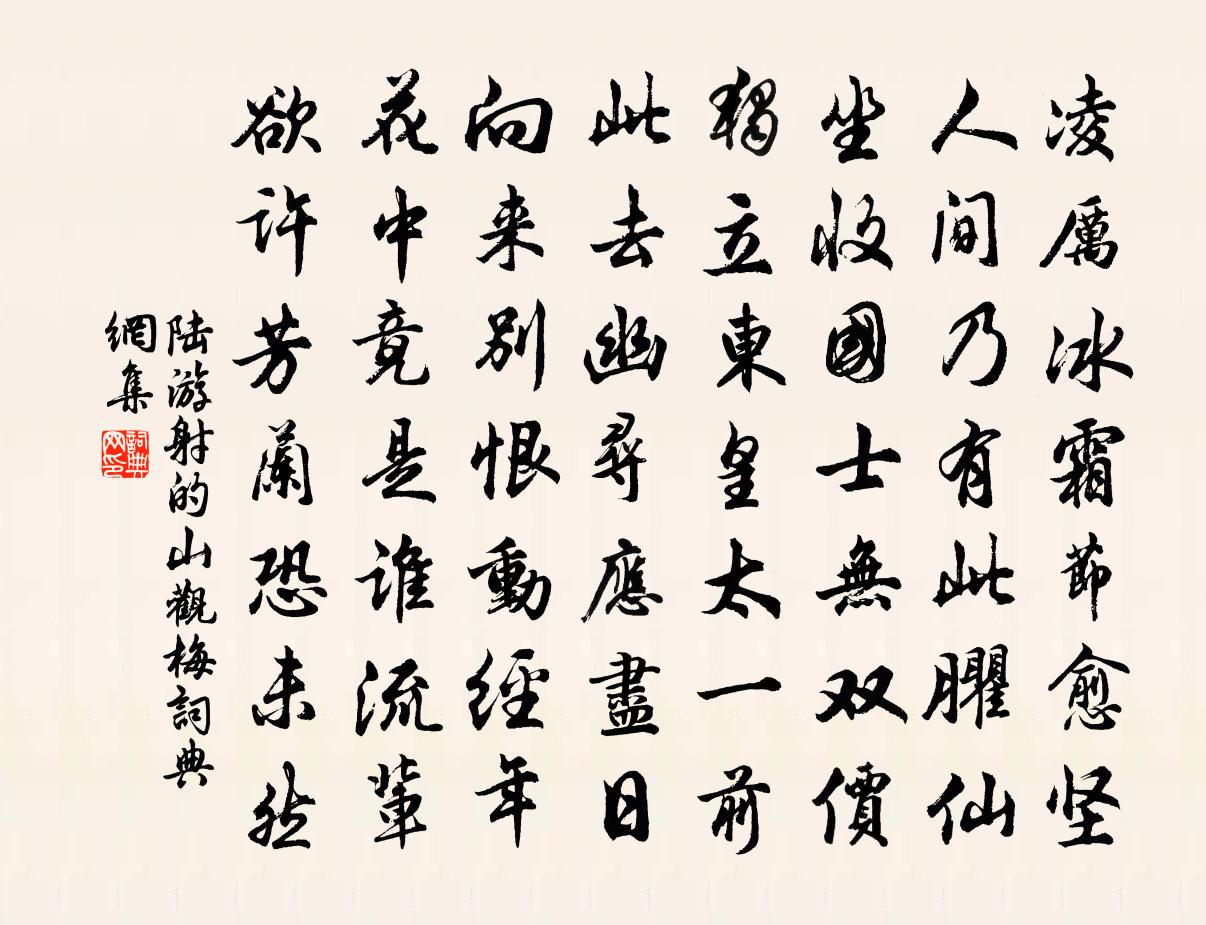 凌厲冰霜節愈坚
人间乃有此臞仙
坐收國士無双價
獨立東皇太一前
此去幽尋應盡日
向来别恨動經年
花中竟是谁流輩
欲许芳蘭恐未然
陆游射的山觀梅詞典
網集
詞典
网印